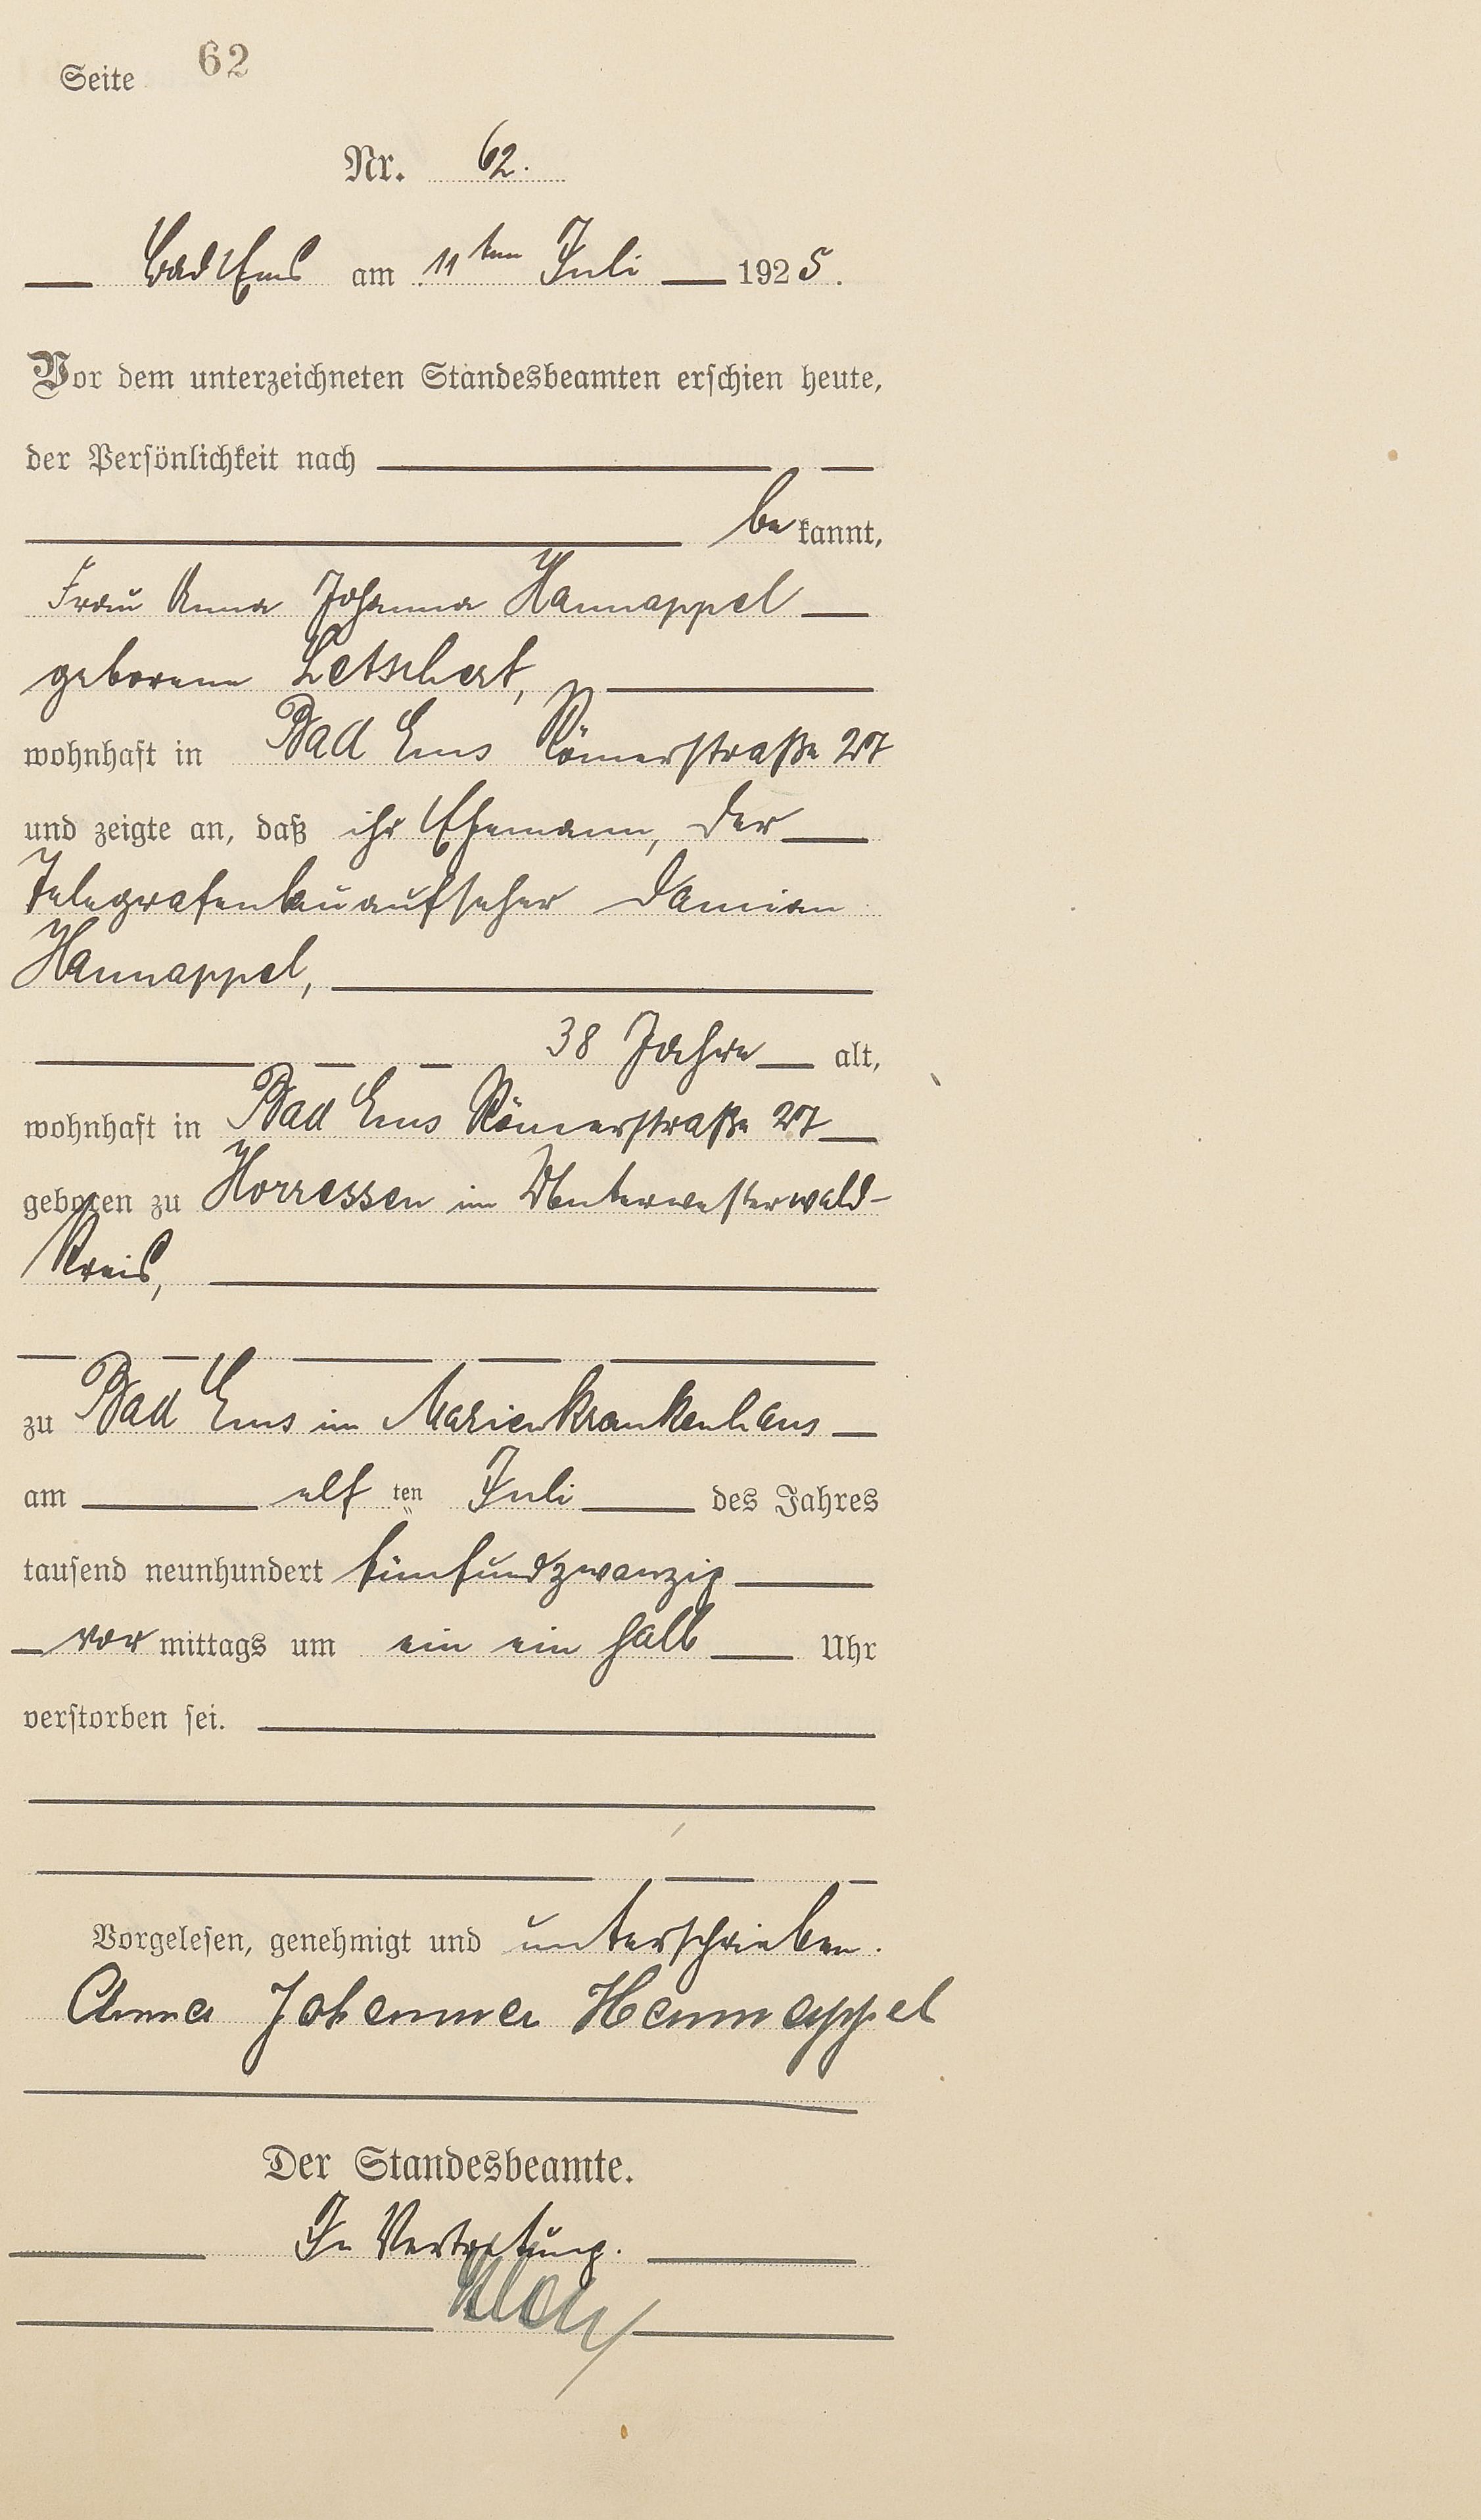 Seite 62
Nr. 62.
Bad Ems am 11ten Juli 1925.
Vor dem unterzeichneten Standesbeamten erschien heute,
der Persönlichkeit nach
bekannt,
Frau Anna Johanna Hannappel
geborene Letschert,
wohnhaft in Bad Ems Römerstraße 27
und zeigte an, daß ihr Ehemann, der
Telegrafenbauaufseher Damian
Hannappel,
38 Jahre alt,
wohnhaft in Bad Ems Römerstraße 27
geboren zu Horressen im Unterwesterwald-
Kreis,
zu Bad Ems im Marienkrankenhaus
am elften Juli des Jahres
tausend neunhundert fünfundzwanzig
vormittags um ein ein halb Uhr
verstorben sei.
Vorgelesen, genehmigt und unterschrieben.
Anna Johanna Hannappel
Der Standesbeamte.
In Vertretung.